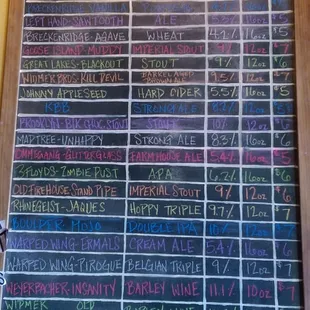 LEFT HAND-SAWTOOTH ALE 5.3% 16oz $5
BRECKENRIDGE-AGAVE WHEAT 4.2% 16oz $5
GOOSE ISLAND-MUDDY IMPERIAL STOUT 9% $7
GREAT LAKES-BLACKOUT STOUT 9% 12oz $6
WIDMER BROS-KILL DEVIL BROWN ALE
JOHNNY APPLESEED HARD CIDER 5.5% 16oz $5
KBB STRONG ALE
BROOKLYN-BLK CHOC STOUT STOUT 10% 12oz $6
MADTREE-UNHAPPY STRONG ALE 8.3% 16oz $6
OMMEGANG-GLIMMERGLASS FARMHOUSE ALE 5.4% 16oz $5
3 FLOYDS-ZOMBIE DUST APA 6.2% 16oz $6
OLD FIREHOUSE STAND PIPE IMPERIAL STOUT 9% 12oz $6
RHINEGEIST-JAQUES HOPPY TRIPLE 9.7% 12oz $7
MOJO DOUBLE IPA 10% 12oz $7
WARPED WING-ERMALS CREAM ALE 5.4% 16oz $6
WARPED WING-PIROGUE BELGIAN TRIPLE 9% 12oz $7
WEYERBACHER-INSANITY BARLEY WINE 11.1% 10oz $7
WIDMER OLD